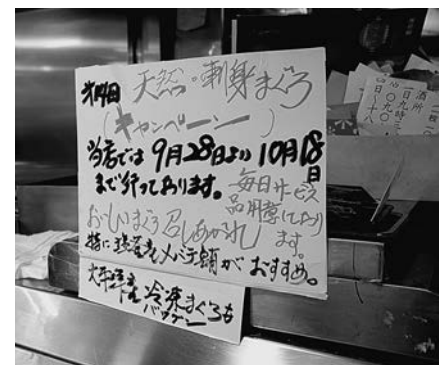 第14回 天然・刺身まぐろ
(キャンペーン)
当店では 9月28日より 10月18日
まで行っております。
毎日サービス
品用意しており
ます。
おいしいまぐろ召しあがれ
特に 産メバチ鮪が おすすめ。
太平洋産 冷凍まぐろも
バツグン